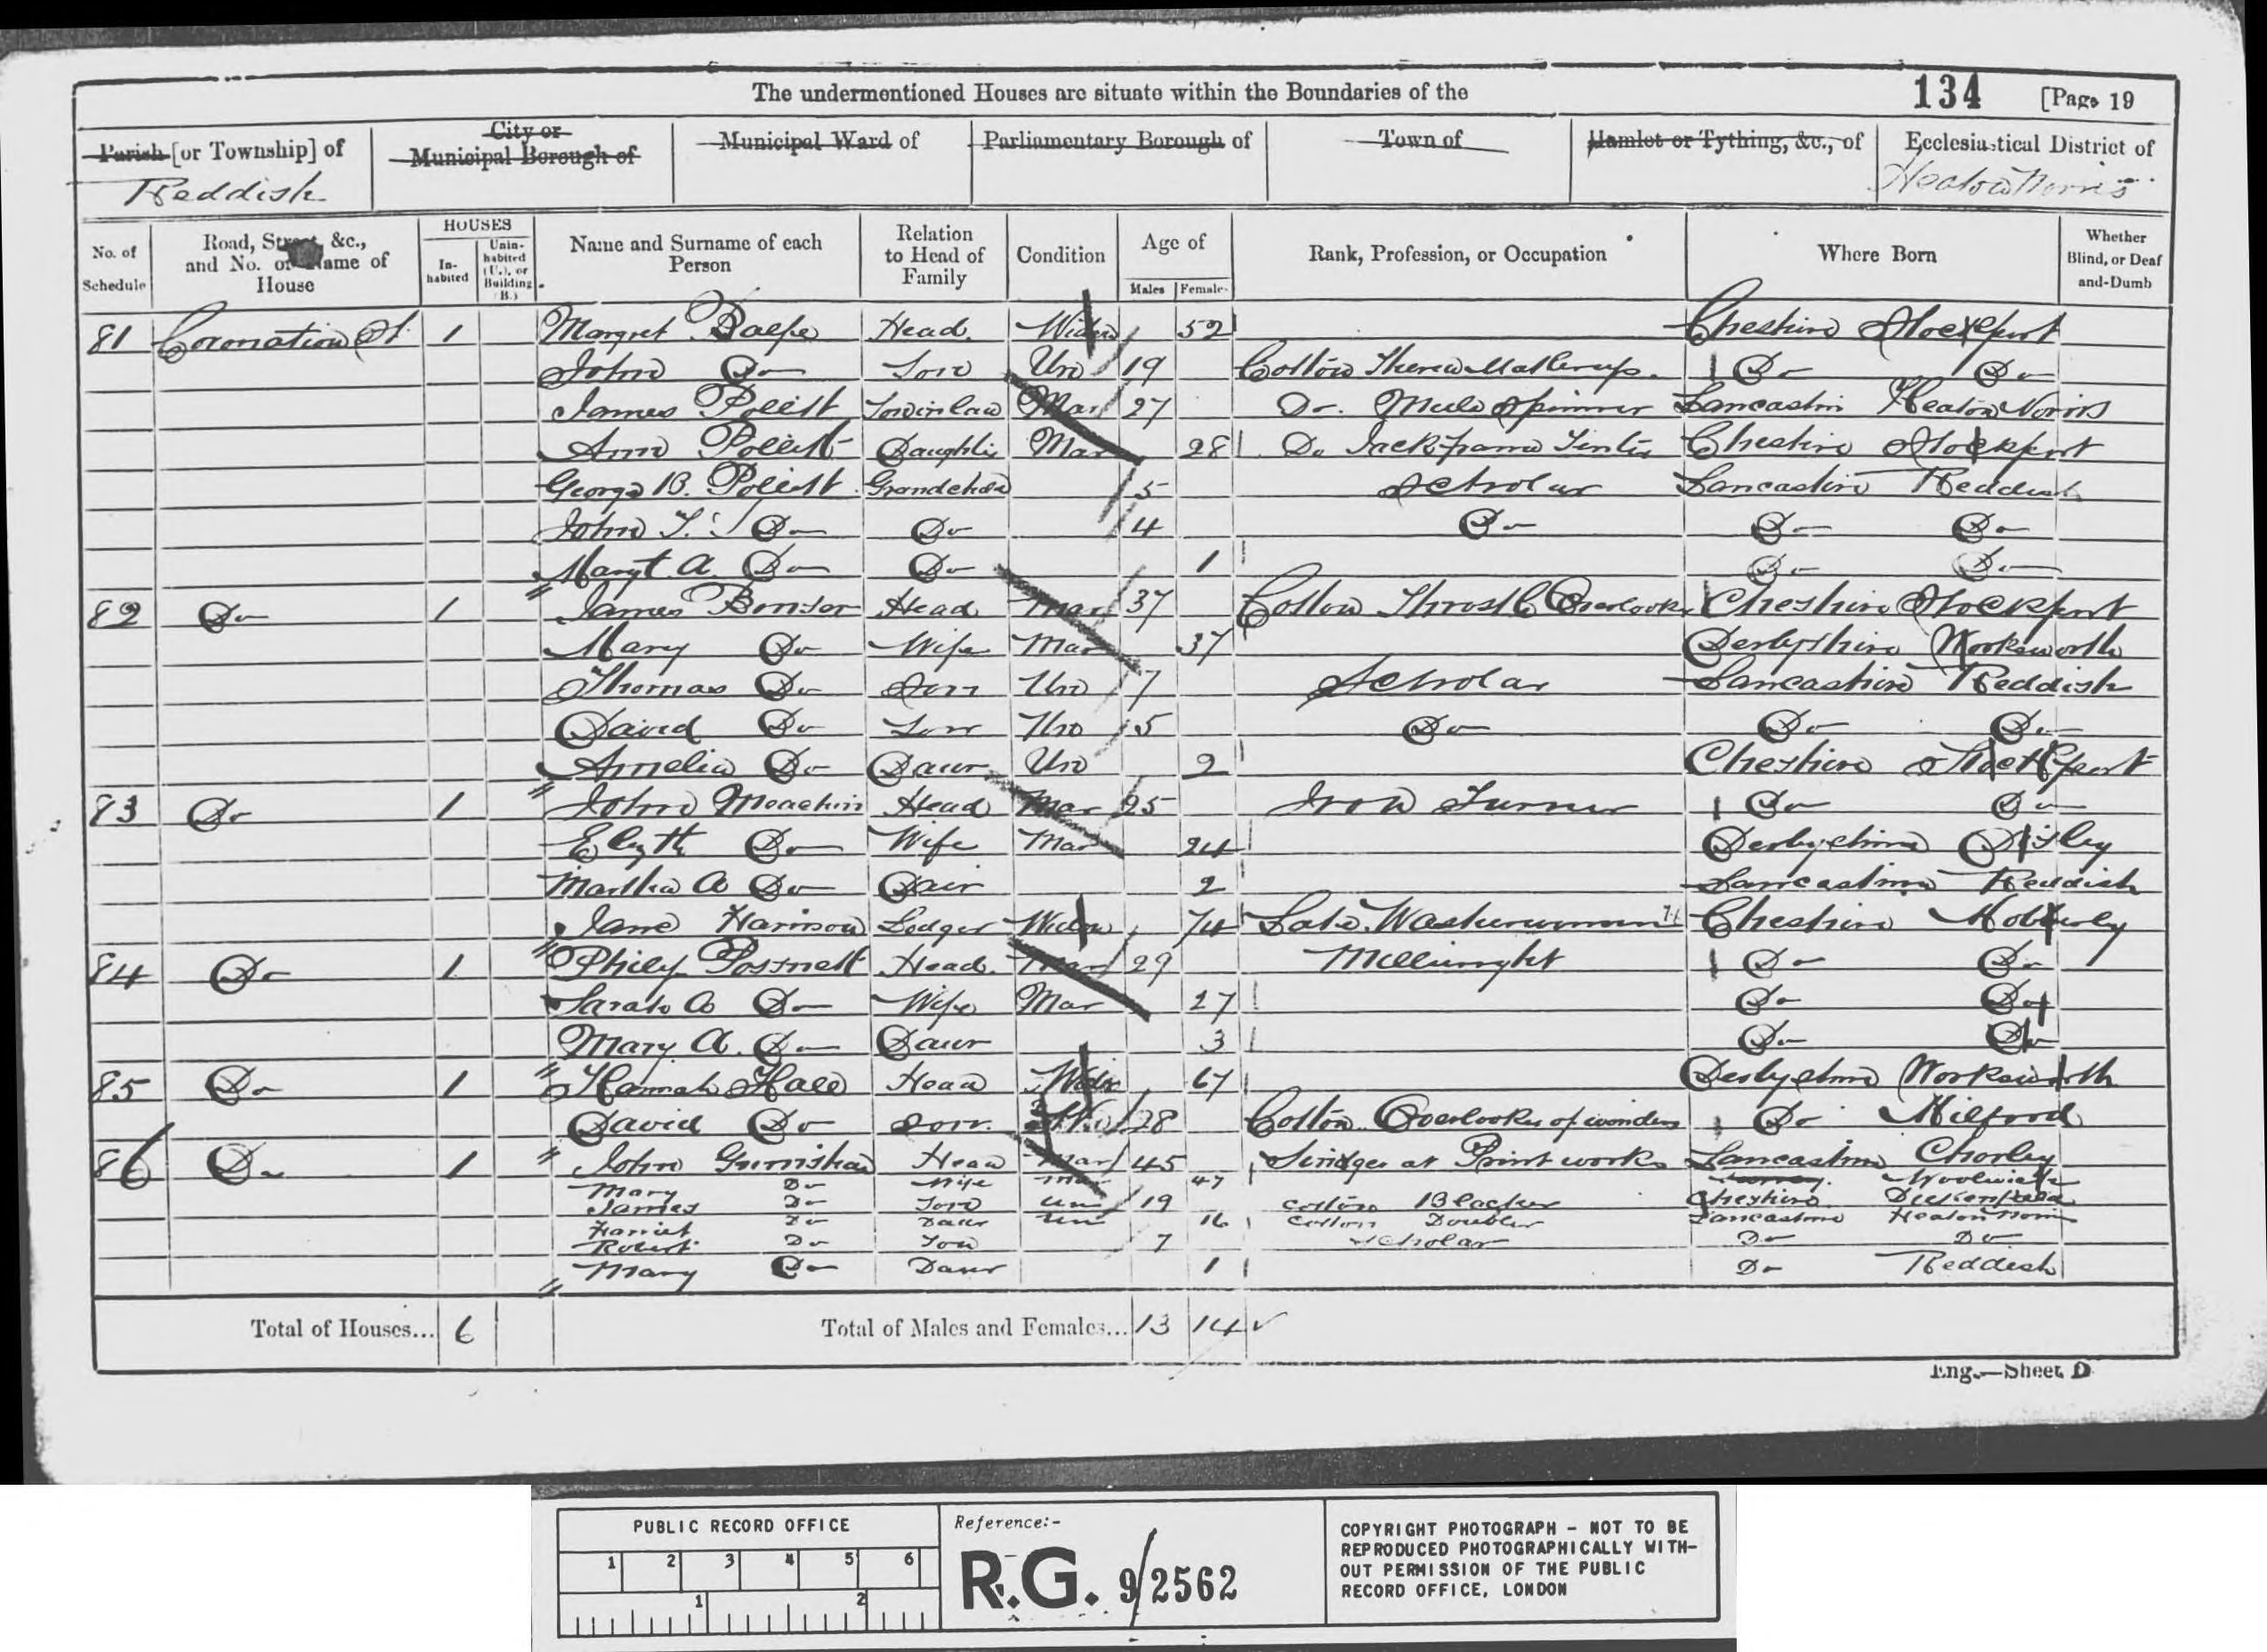 The undermentioned Houses are situate within the Boundaries of the 134 [Page 19
Parish [or Township] of City or Municipal Borough of Municipal Ward of Parliamentary Borough of Town of Hamlet or Tything, &c., of Ecclesiastical District of
Reddish Heaton Norris
No. of Schedule Road, Street, &c., and No. or Name of House HOUSES Inhabited Uninhabited (U.), or Building (B.) Name and Surname of each Person Relation to Head of Family Condition Age of Males Females Rank, Profession, or Occupation Where Born Whether Blind, or Deaf-and-Dumb
81 Coronation St. 1 Margret Head Widow 52 Cheshire Stockport
John Do Son Un 19 Cotton Do Do
James Son in law Mar 27 Do. Mule Spinner Lancashire Heaton Norris
Ann Daughter Mar 28 Do Jack frame Tenter Cheshire Stockport
George B. Grandchild 5 Scholar Lancashire Reddish
John T. Do Do 4 Do Do Do
Margt. A. Do Do 1 Do Do
82 Do 1 James Bonsor Head Mar 37 Cotton Throstle Overlooker Cheshire Stockport
Mary Do Wife Mar 37 Derbyshire Worksworth
Thomas Do Son Un 7 Scholar Lancashire Reddish
David Do Son Un 5 Do Do Do
Amelia Do Daur Un 2 Cheshire Stockport
83 Do 1 John Meachin Head Mar 25 Iron Turner Do Do
Elizth Do Wife Mar 24 Derbyshire Disley
Martha A Do Daur 2 Lancashire Reddish
Jane Harrison Lodger Widow 74 Late Washerwoman Cheshire Mobberley
84 Do 1 Philip Head Mar 29 Millwright Do Do
Sarah A Do Wife Mar 27 Do Do
Mary A. Do Daur 3 Do Do
85 Do 1 Hannah Hall Head Widow 67 Derbyshire Worksworth
David Do Son Un 28 Cotton Overlooker of winders Do Milford
86 Do 1 John Grimshaw Head Mar 45 Singer at Print works Lancashire Chorley
Mary Do Wife Mar 47 Woolwich
James Do Son Un 19 Cotton Cheshire Duckenfield
Harriet Do Daur Un 16 Cotton Doubler Lancashire Heaton Norris
Robert Do Son 7 Scholar Do Do
Mary Do Daur 1 Do Reddish
Total of Houses... 6 Total of Males and Females... 13 14
Eng.—Sheet D
PUBLIC RECORD OFFICE
1 2 3 4 5 6
1 2
Reference:-
R.G. 9/2562
COPYRIGHT PHOTOGRAPH - NOT TO BE
REPRODUCED PHOTOGRAPHICALLY WITH-
OUT PERMISSION OF THE PUBLIC
RECORD OFFICE, LONDON